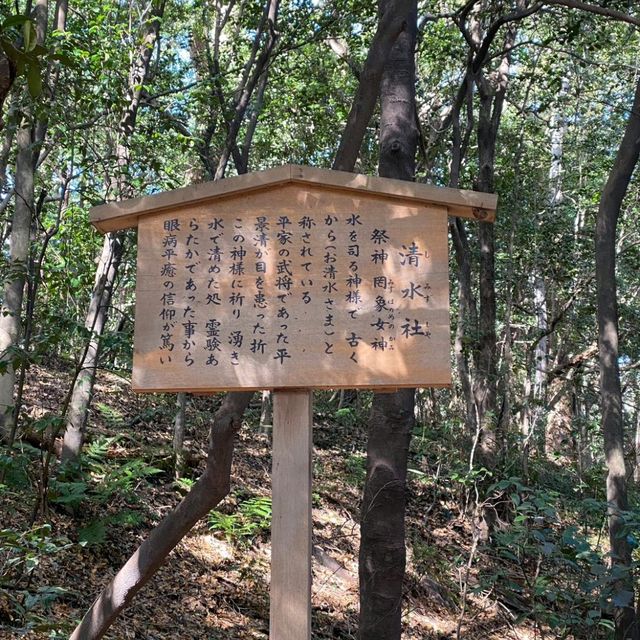 清水社
しみずしゃ
祭神　罔象女神
みずはのめのかみ
水を司る神様で　古く
から（お清水さま）と
称されている
平家の武将であった平
景清が目を患った折
この神様に祈り　湧き
水で清めた処　霊験あ
らたかであった事から
眼病平癒の信仰が篤い